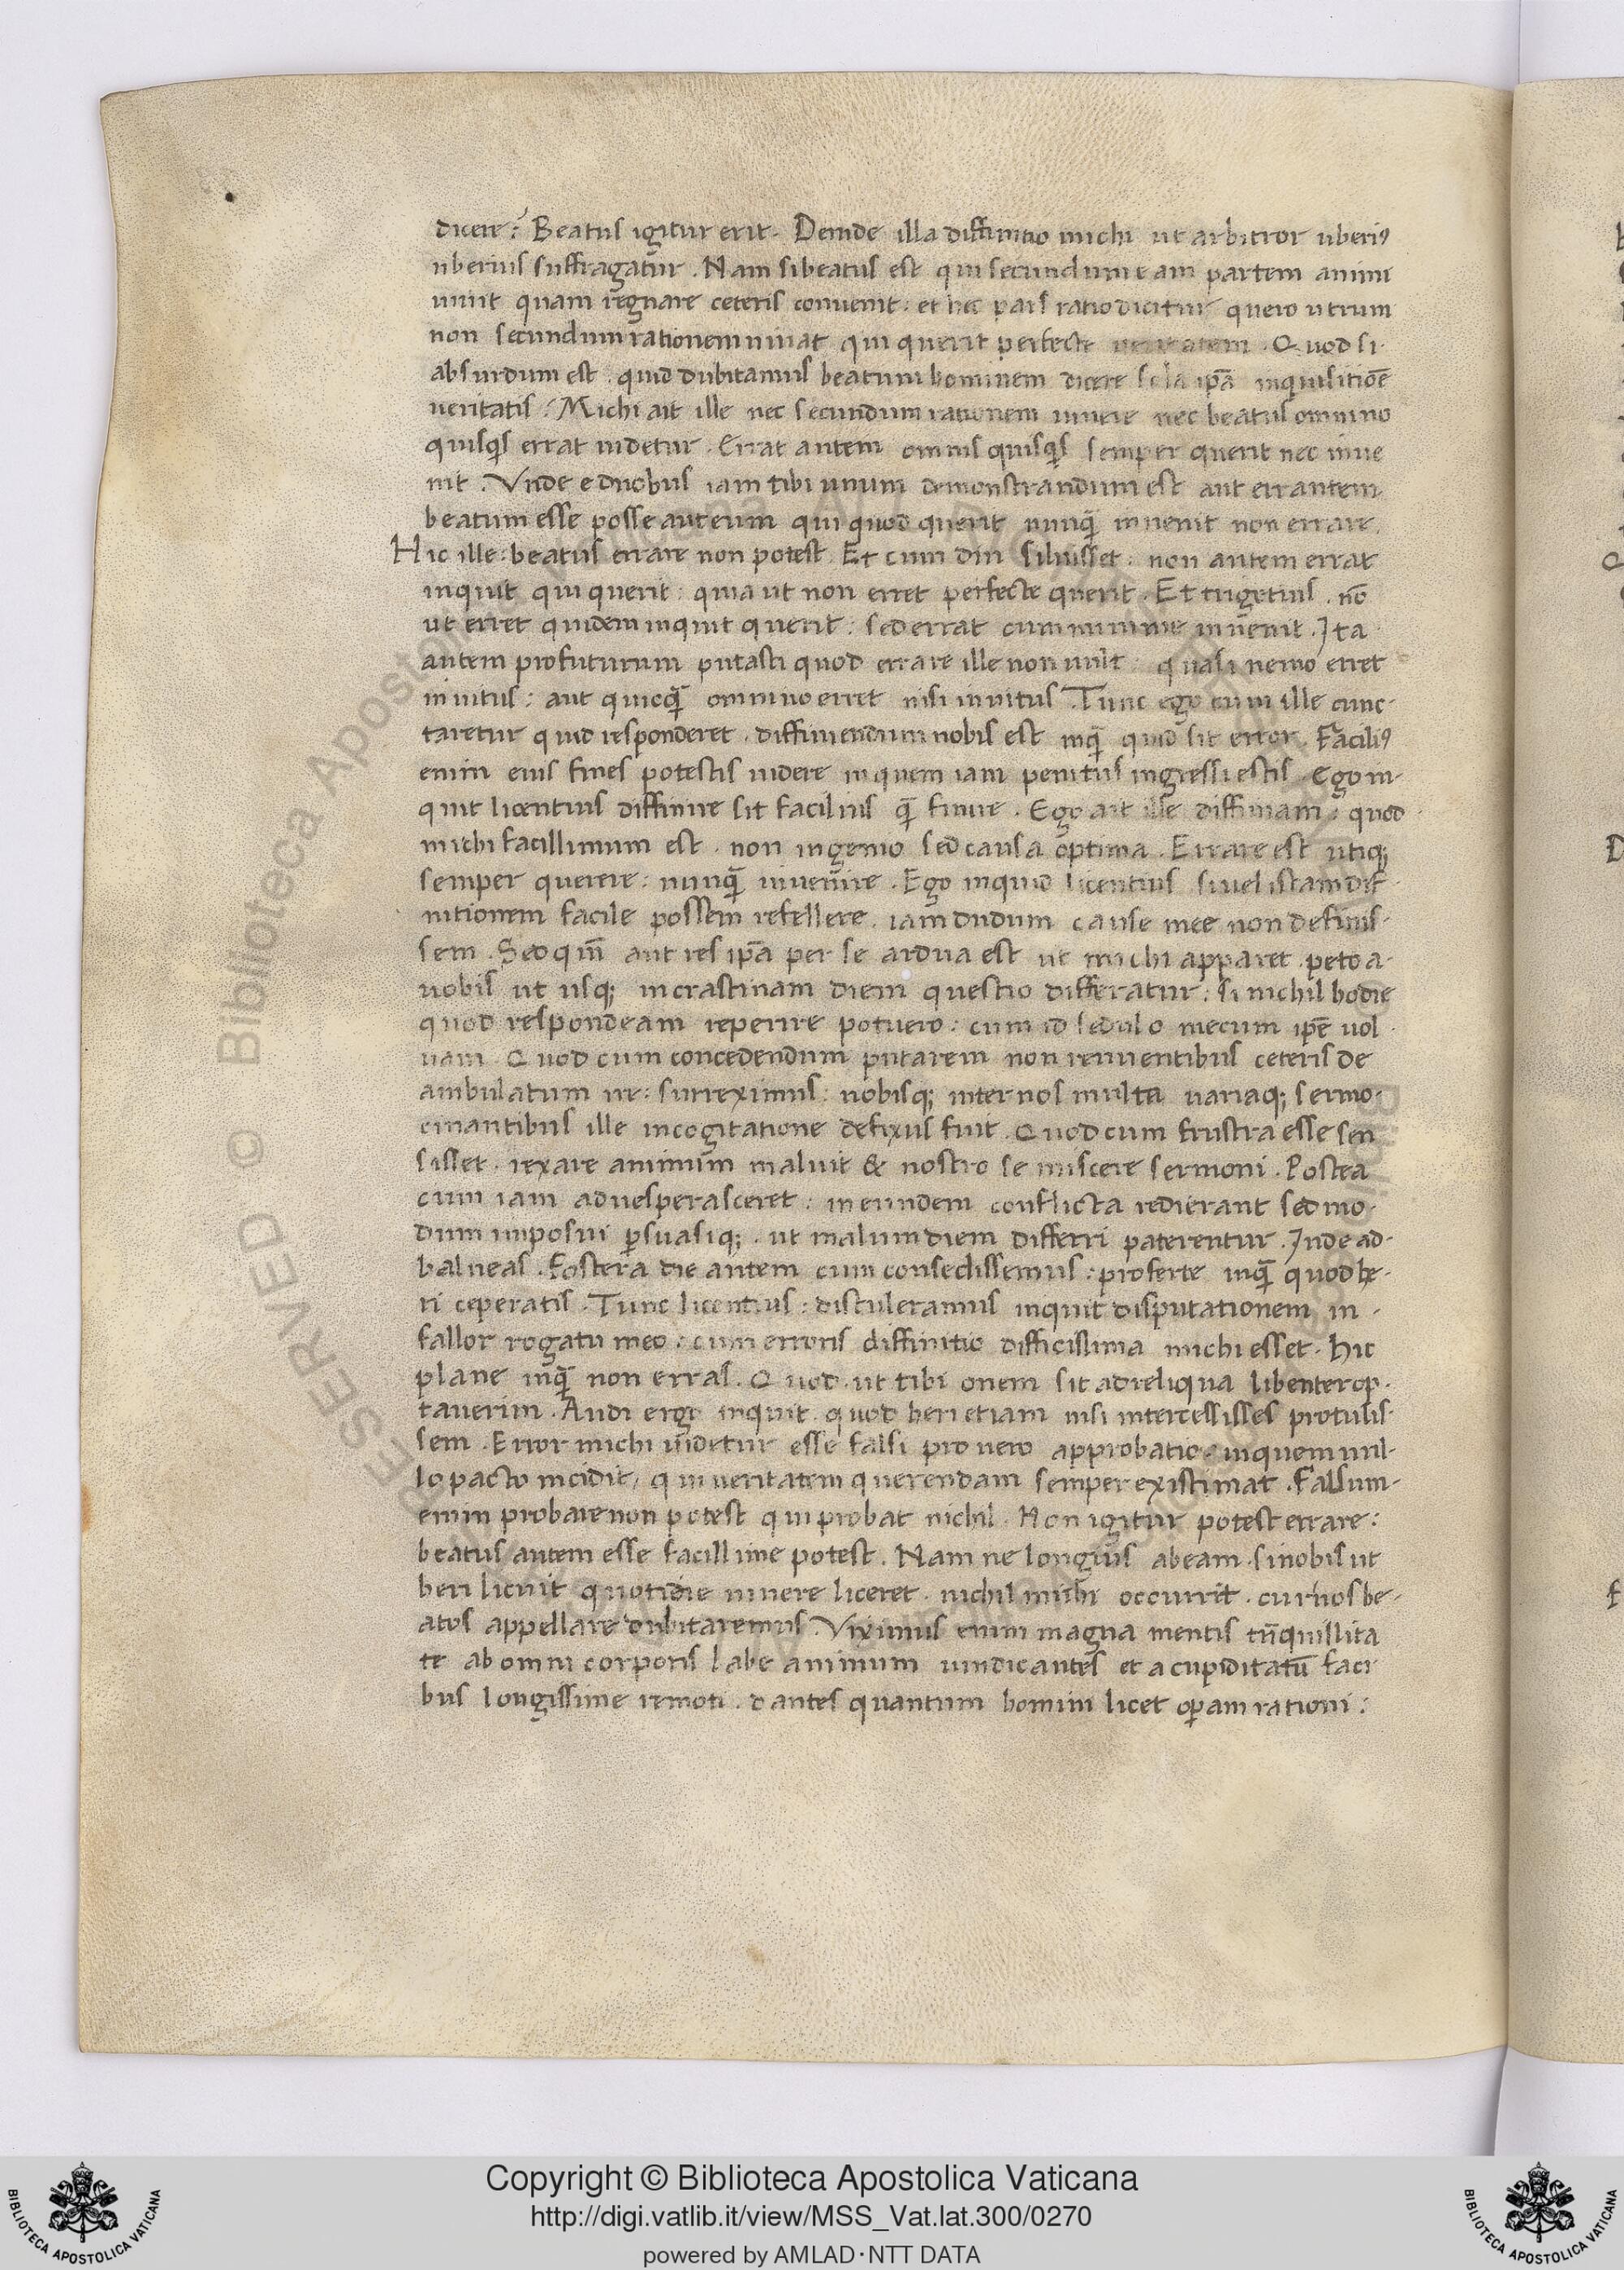 dicere? Beatus igitur erit. Deinde illa diffinitio michi ut arbitror uberiꝰ
uberius suffragatur. Nam si beatus est qui secundum eam partem animi
uiuit quam regnare ceteris conuenit: et hec pars ratio dicitur quero utrum
non secundum rationem uiuat qui querit perfecte ueritatem. Quod si
absurdum est. quid dubitamus beatum hominem dicere sola ip̄a inquisitiōe
ueritatis? Michi ait ille nec secundum rationem uiuere nec beatus omnino
quisq̄s errat uidetur. Errat autem omnis quisq̄s semper querit nec inue
nit. Vnde e duobus iam tibi unum demonstrandum est aut errantem
beatum esse posse aut eum qui quod querit nunq̄ inuenit non errare.
Hic ille: beatus errare non potest. Et cum diu siluisset: non autem errat
inquit qui querit: quia ut non erret perfecte querit. Et trigetius. nō
ut erret quidem inquit querit: sed errat cum minime inuenit. Ita
autem profuturum putasti quod errare ille non uult: quasi nemo erret
inuitus: aut quicq̄ omnino erret nisi inuitus. Tunc ego cum ille cunc-
taretur quid responderet. diffiniendum nobis est inq̄ quid sit error. Faciliꝰ
enim eius fines potestis uidere in quem iam penitus ingressi estis. Ego in-
quit licentius diffinire sit facilius q̄ finire. Ego ait ille diffiniam: quod
michi facillimum est. non ingenio sed causa optima. Errare est utiq;
semper querere: nunq̄ inuenire. Ego inquid licentius si uel istam dif-
nitionem facile possem refellere. iam dudum cause mee non defuis-
sem. Sed qm̄ aut res ip̄a per se ardua est ut michi apparet. peto a-
uobis ut usq; in crastinam diem questio differatur: si nichil hodie
quod respondeam reperire potuero: cum id sedulo mecum ip̄e uol-
uam. Quod cum concedendum putarem non renuentibus ceteris de
ambulatum ire: surreximus: nobisq; inter nos multa uariaq; sermo-
cinantibus ille in cogitatione defixus fuit. Quod cum frustra esse sen
sisset. rexare animum maluit & nostro se miscere sermoni. Postea
cum iam aduesperasceret: in eundem conflicta redierant sed mo-
dum imposui p̱suasiq;. ut in alium diem differri paterentur. Inde ad-
balneas. Postera die autem cum consedissemus: proferte inq̄ quod he-
ri ceperatis. Tunc licentius: distuleramus inquit disputationem ni-
fallor rogatu meo: cum erroris diffinitio difficissima michi esset. hic
plane inq̄ non erras. Quod. ut tibi omen sit ad reliqua libenter op-
tauerim. Audi ergo inquit. quod heri etiam nisi intercessisses protulis-
sem. Error michi uidetur esse falsi pro uero approbatio. in quem nul-
lo pacto incidit, qui ueritatem querendam semper existimat. Falsum-
enim probare non potest qui probat nichil. Non igitur potest errare:
beatus autem esse facillime potest. Nam ne longius abeam. si nobis ut
heri licuit quotidie uiuere liceret. nichil mihi occurrit. cur nos be-
atos appellare dubitaremus. Viximus enim magna mentis tn̄quillita
te ab omni corporis labe animum uindicantes et a cupiditatū faci-
bus longissime remoti. dantes quantum homini licet op̱am rationi:
Copyright © Biblioteca Apostolica Vaticana
http://digi.vatlib.it/view/MSS_Vat.lat.300/0270
powered by AMLAD·NTT DATA